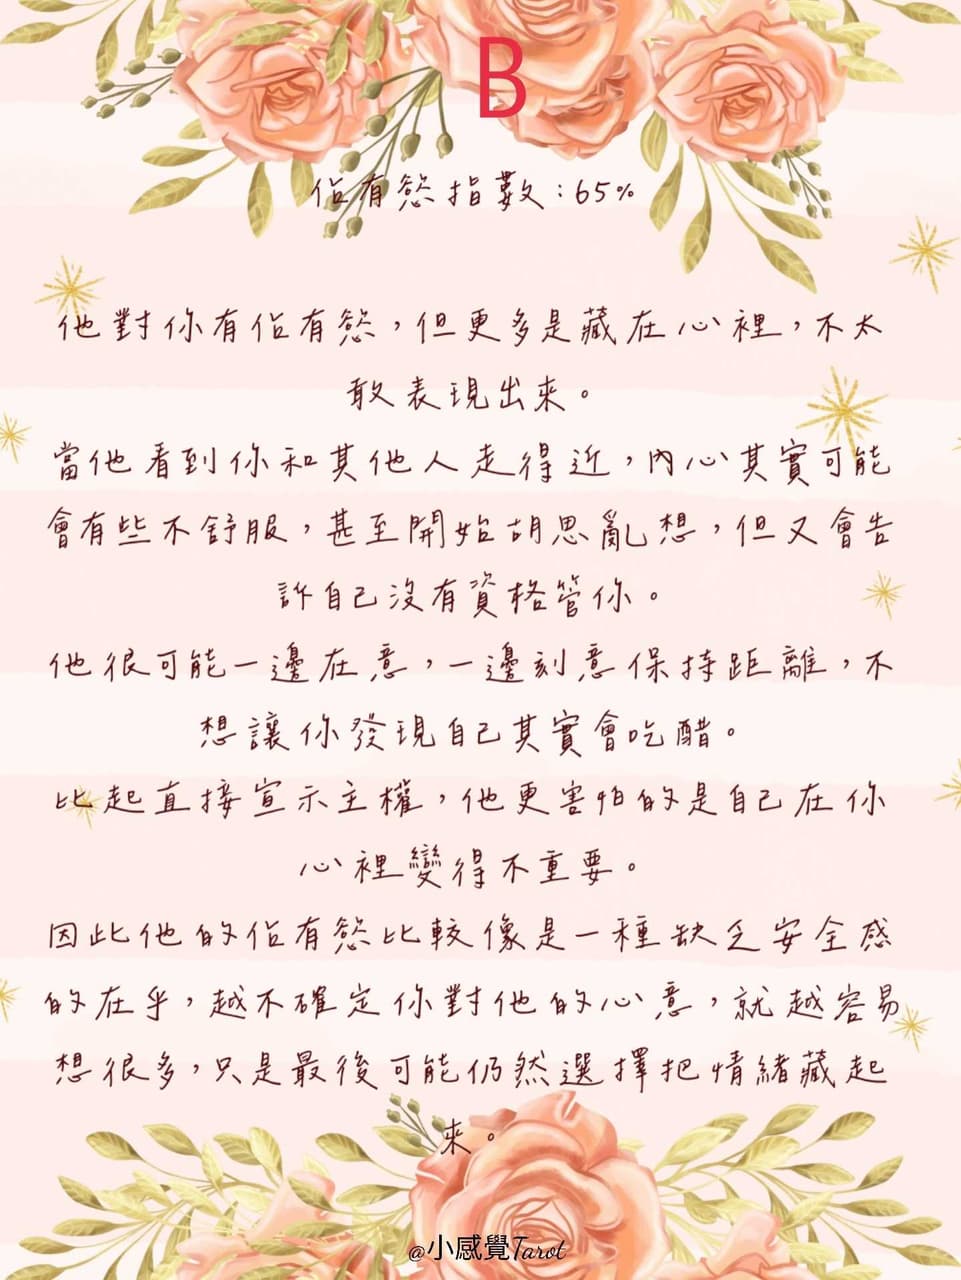 B
佔有慾指數：65%
他對你有佔有慾，但更多是藏在心裡，不太
敢表現出來。
當他看到你和其他人走得近，內心其實可能
會有些不舒服，甚至開始胡思亂想，但又會告
訴自己沒有資格管你。
他很可能一邊在意，一邊刻意保持距離，不
想讓你發現自己其實會吃醋。
比起直接宣示主權，他更害怕的是自己在你
心裡變得不重要。
因此他的佔有慾比較像是一種缺乏安全感
的在乎，越不確定你對他的心意，就越容易
想很多，只是最後可能仍然選擇把情緒藏起
來。
@小感覺Tarot